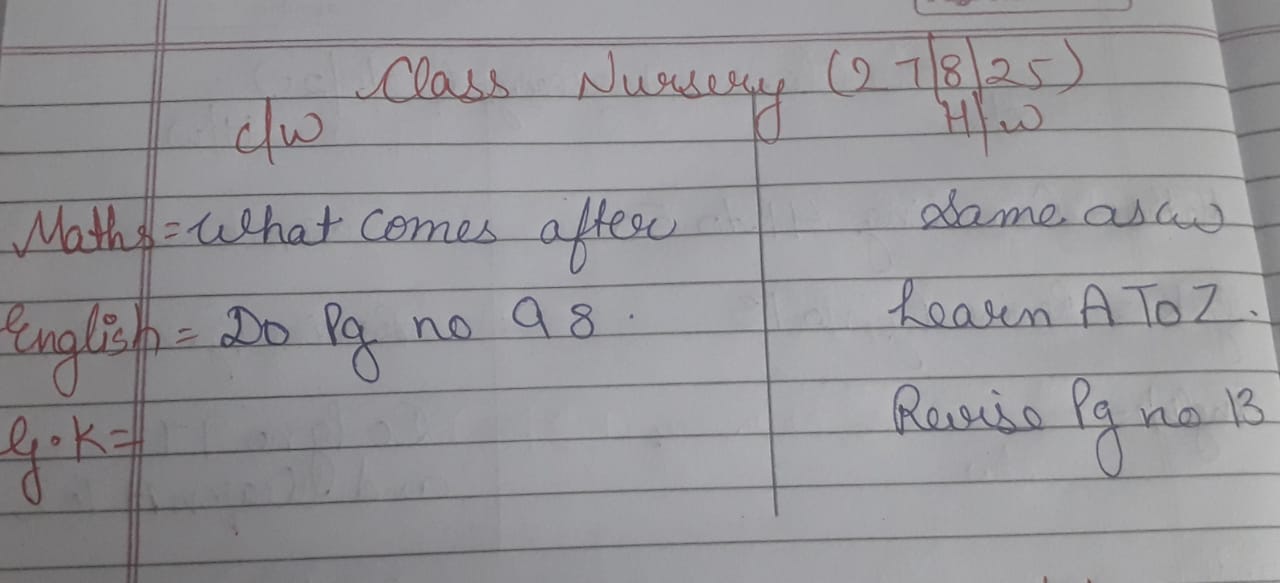 Class Nursery (27/8/25)
c/w H/w
Maths = What comes after Same as cw
English = Do Pg no 98. Learn A To Z.
G.K = Revise Pg no 13